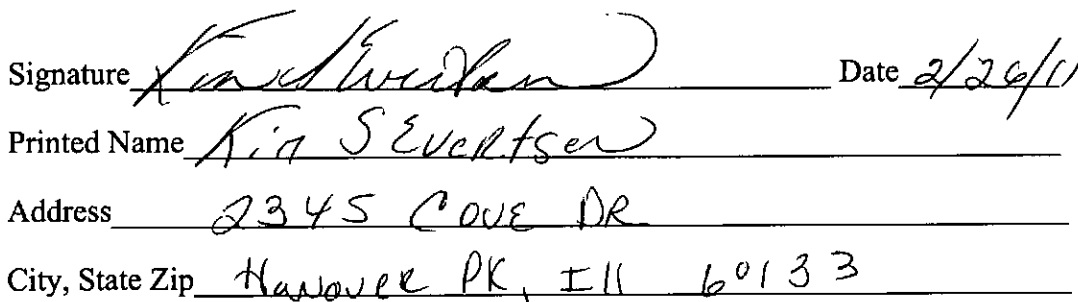 Signature Kim S Evertsen Date 2/26/11
Printed Name Kim S Evertsen
Address 2345 COVE DR
City, State Zip Hanover PK, Ill 60133